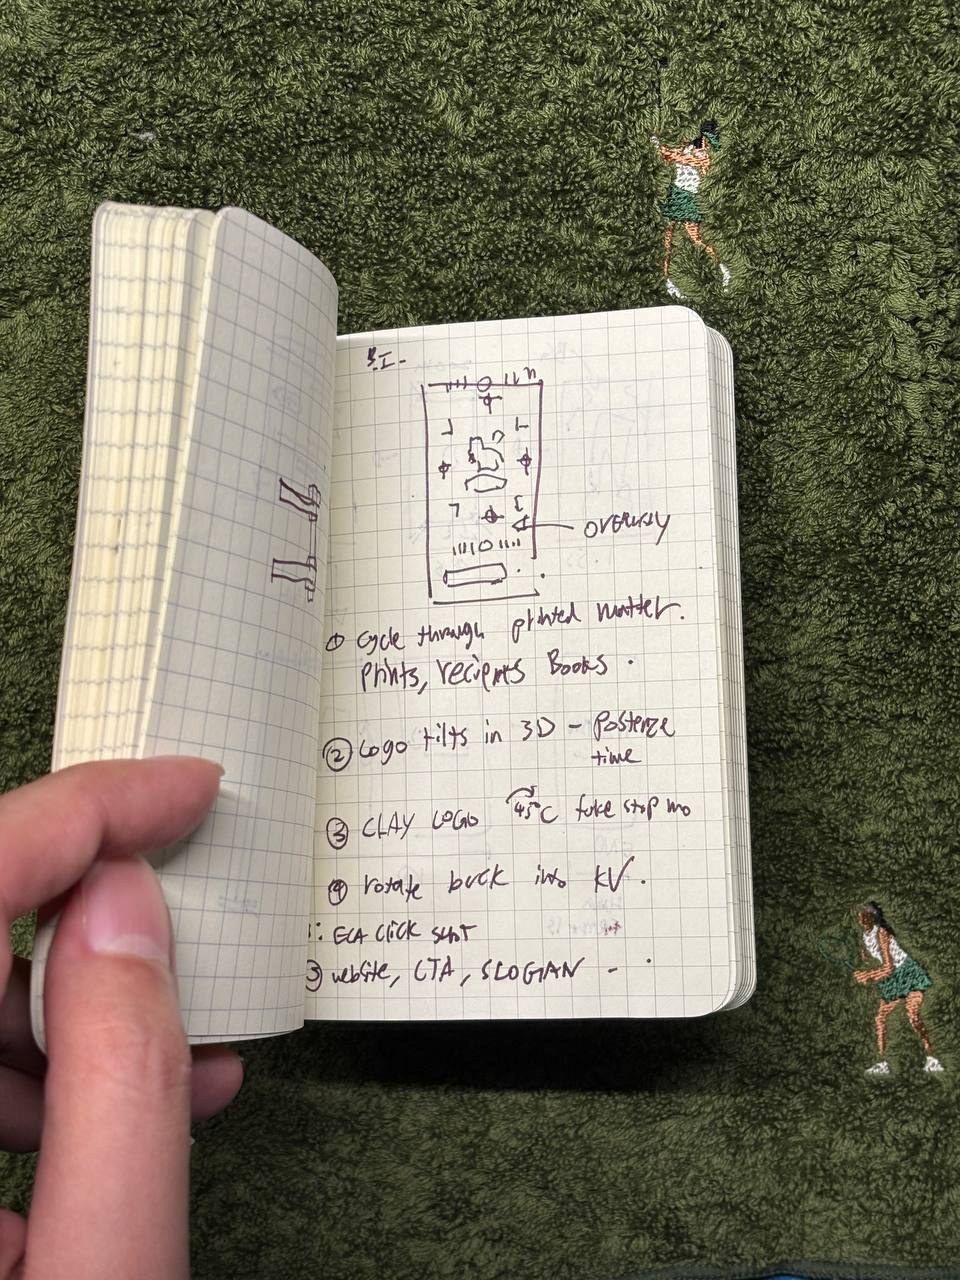 OVERLAY
① Cycle through printed matter.
Prints, recipents Books.
② Logo tilts in 3D - Posterize
time
③ CLAY LOGO 45°C fake stop mo
④ rotate back into KV.
: ECA Click shot
website, CTA, SLOGAN - .